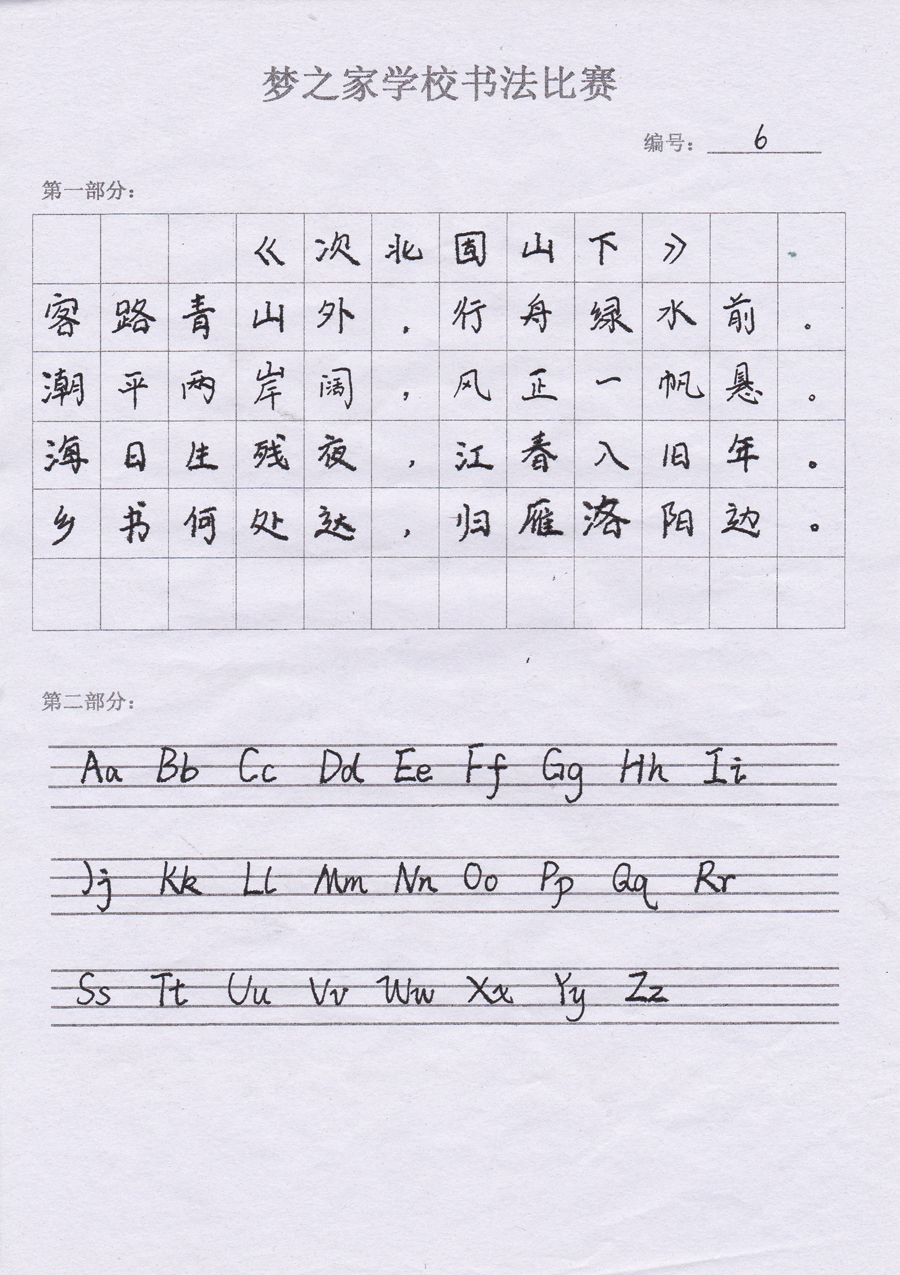 梦之家学校书法比赛
编号： 6
第一部分：
《次北固山下》
客路青山外，行舟绿水前。
潮平两岸阔，风正一帆悬。
海日生残夜，江春入旧年。
乡书何处达，归雁洛阳边。
第二部分：
Aa Bb Cc Dd Ee Ff Gg Hh Ii
Jj Kk Ll Mm Nn Oo Pp Qq Rr
Ss Tt Uu Vv Ww Xx Yy Zz